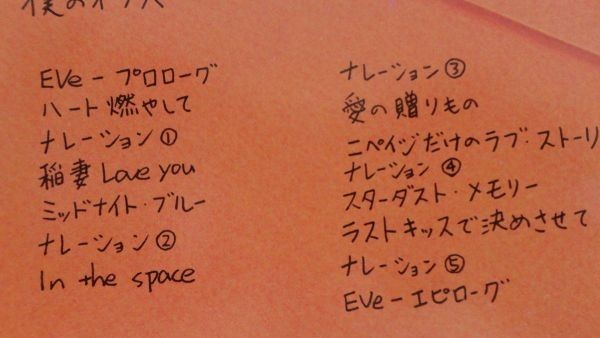 EVe－プロローグ
ハート燃やして
ナレーション①
稲妻 Love you
ミッドナイト・ブルー
ナレーション②
In the space
ナレーション③
愛の贈りもの
ニペイジだけのラブ・ストーリ
ナレーション④
スターダスト・メモリー
ラストキッスで決めさせて
ナレーション⑤
EVe－エピローグ